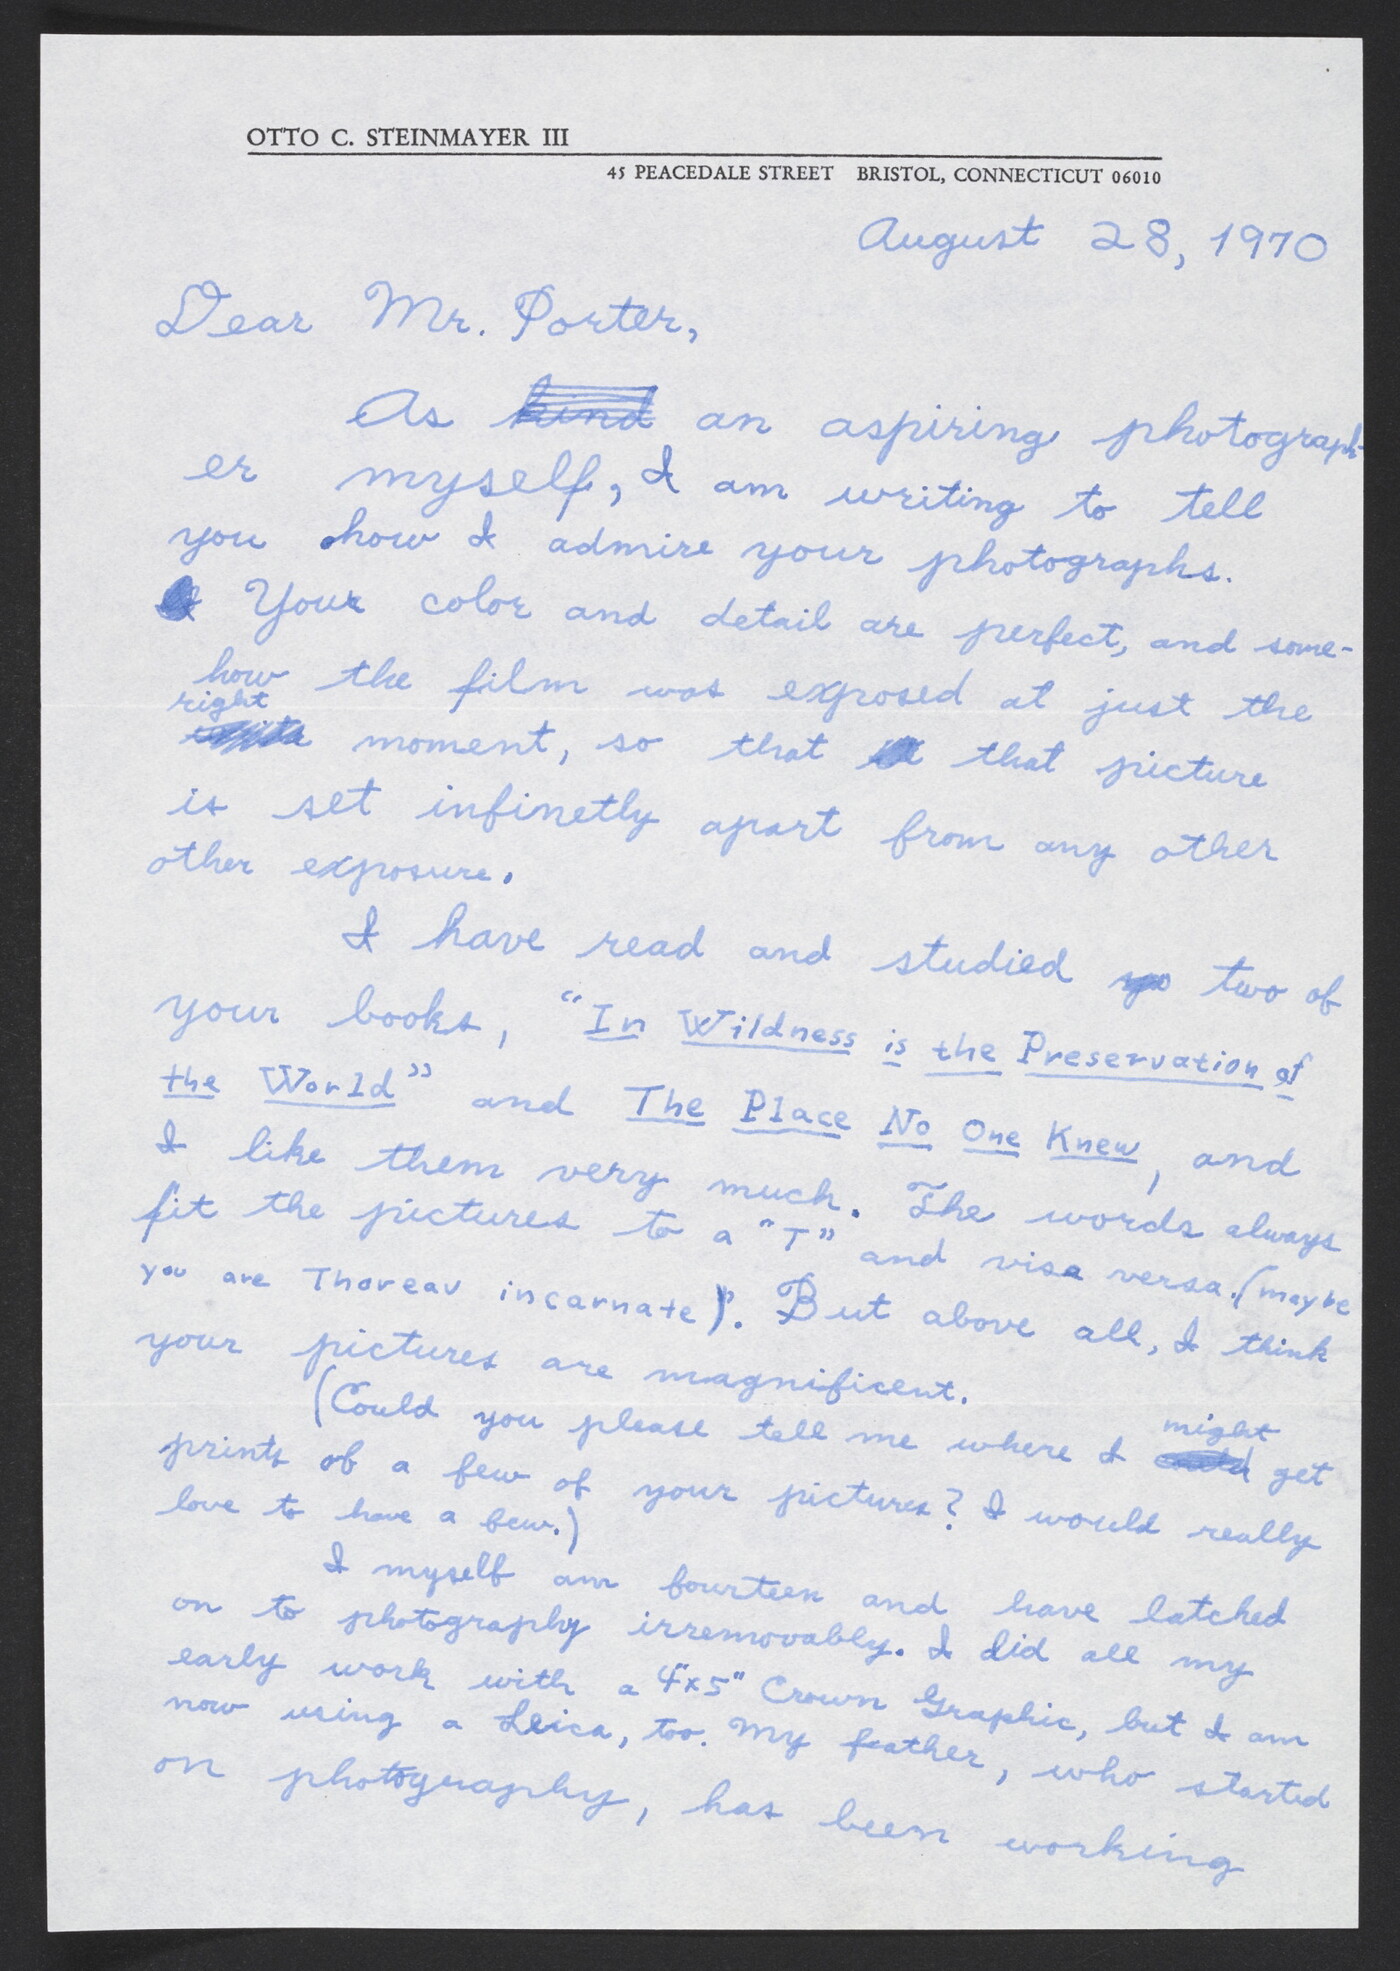 OTTO C. STEINMAYER III
45 PEACEDALE STREET BRISTOL, CONNECTICUT 06010
August 28, 1970
Dear Mr. Porter,
As kind an aspiring photograph-
er myself, I am writing to tell
you how I admire your photographs.
Your color and detail are perfect, and some-
how the film was exposed at just the
right
moment, so that that picture
is set infinetly apart from any other
other exposure.
I have read and studied yo two of
your books, "In Wildness is the Preservation of
the World" and The Place No One Knew, and
I like them very much. The words always
fit the pictures to a "T" and visa versa. (maybe
you are Thoreau incarnate). But above all, I think
your pictures are magnificent.
(Could you please tell me where I might could get
prints of a few of your pictures? I would really
love to have a few.)
I myself am fourteen and have latched
on to photography irremovably. I did all my
early work with a 4"x5" Crown Graphic, but I am
now using a Leica, too. My father, who started
on photography, has been working